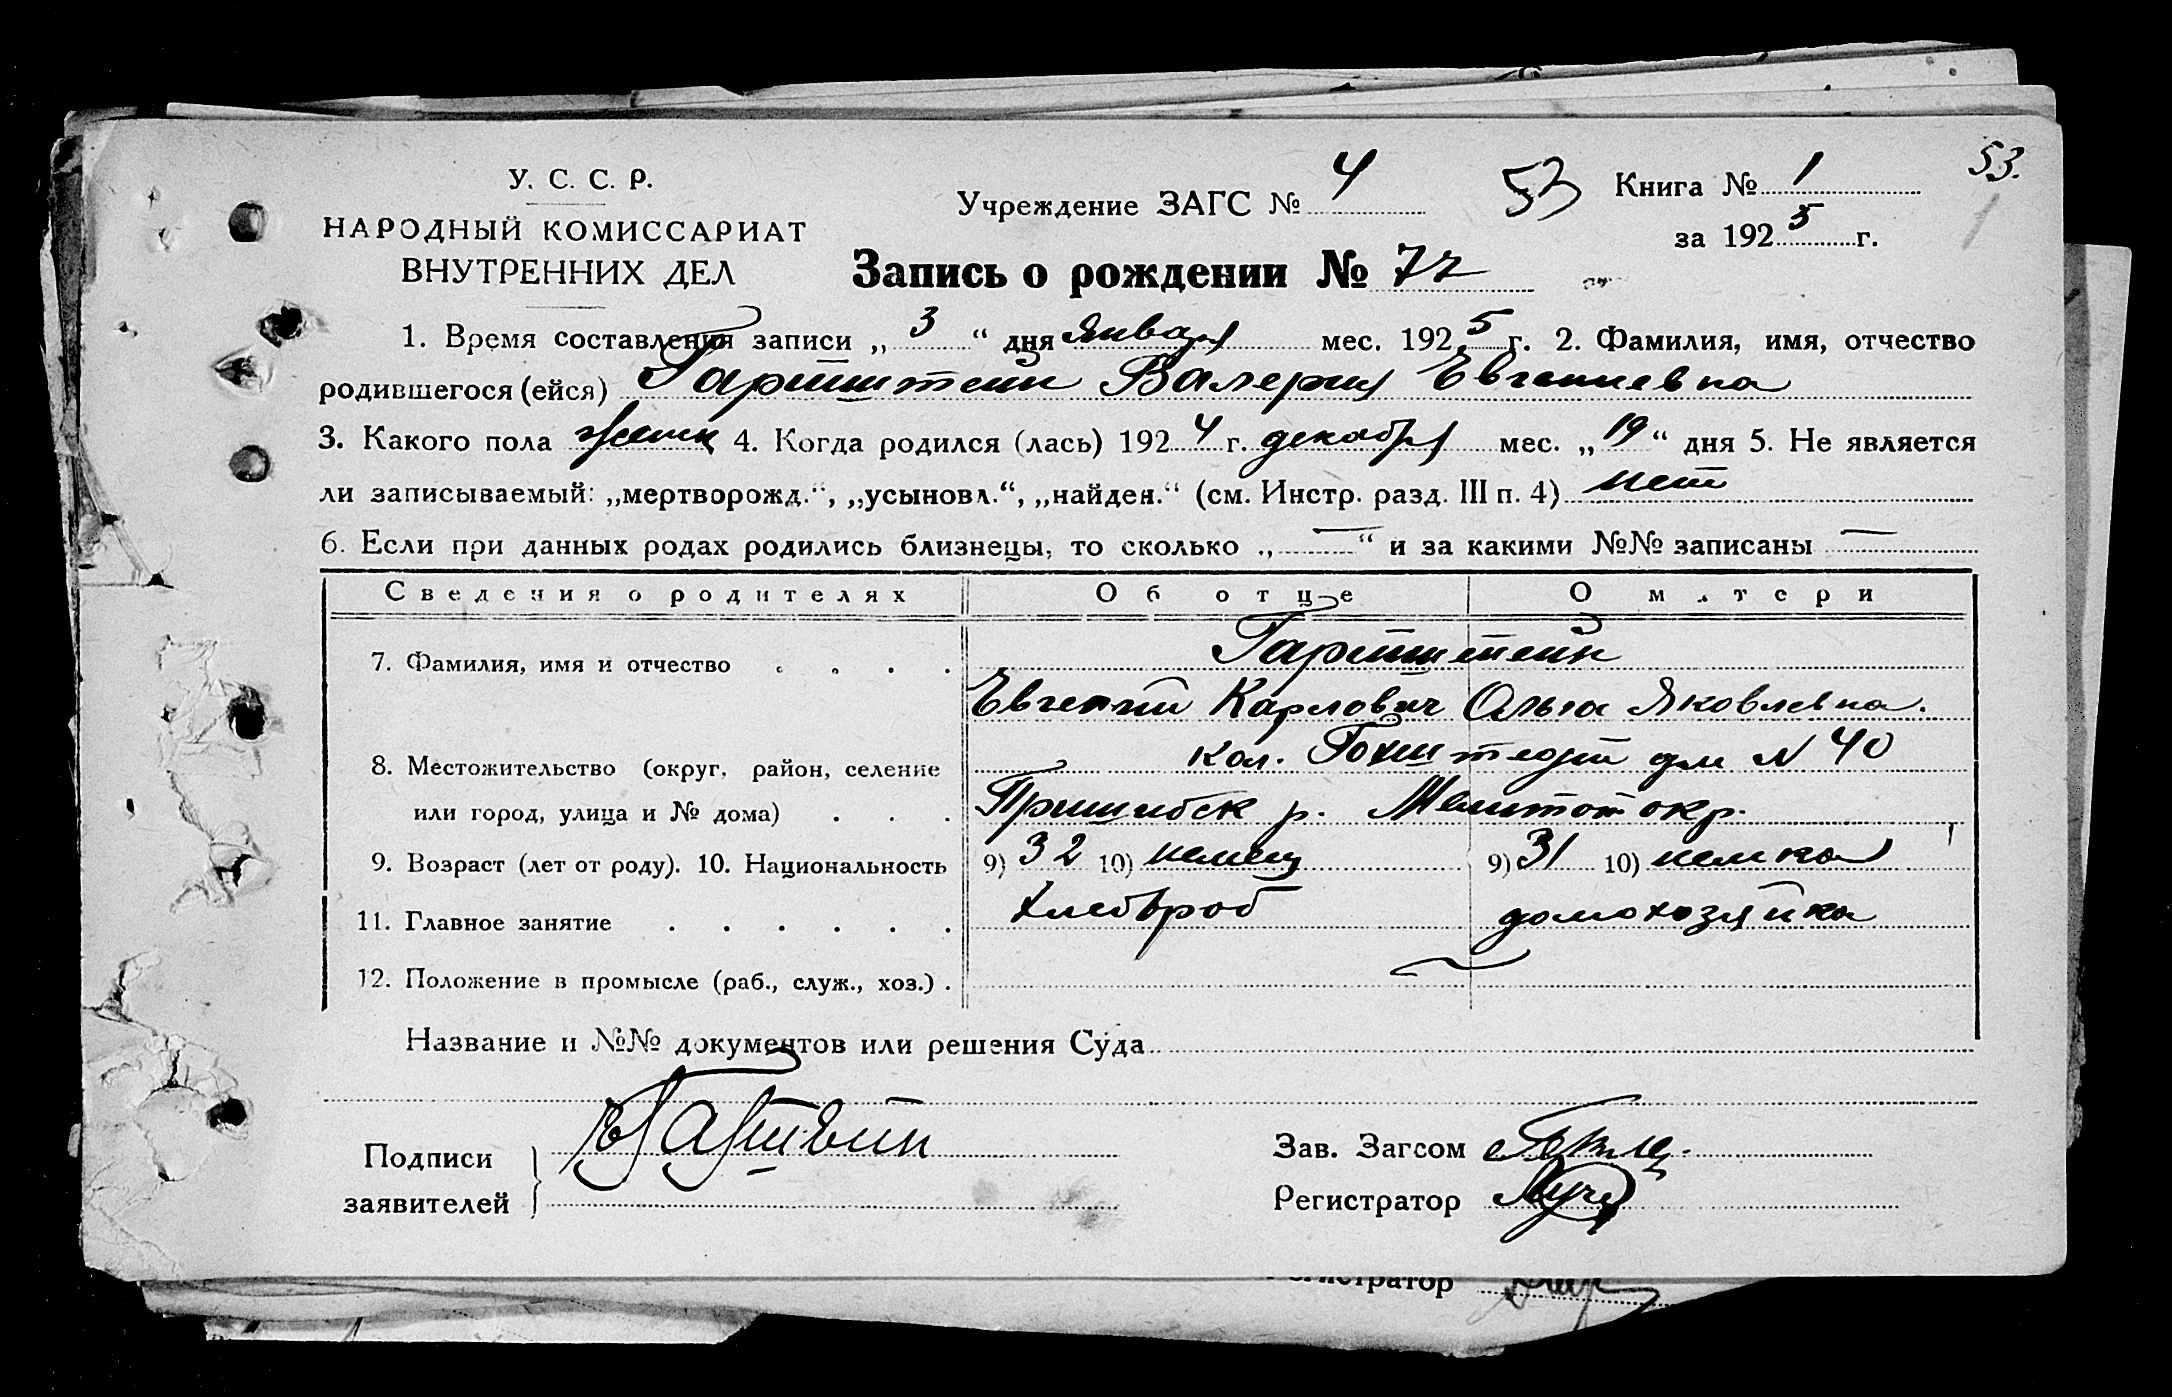 53.
У. С. С. Р.
НАРОДНЫЙ КОМИССАРИАТ
ВНУТРЕННИХ ДЕЛ
Учреждение ЗАГС № 4
53
Книга № 1
за 1925 г.
1
Запись о рождении № 72
1. Время составления записи „3“ дня января мес. 1925 г. 2. Фамилия, имя, отчество
родившегося (ейся) Гартштейн Валерия Евгениевна
3. Какого пола женск 4. Когда родился (лась) 1924 г. декабря мес. „19“ дня 5. Не является
ли записываемый: „мертворожд.“, „усыновл.“, „найден.“ (см. Инстр. разд. III п. 4) нет
6. Если при данных родах родились близнецы, то сколько „—“ и за какими №№ записаны —
Сведения о родителях Об отце О матери
7. Фамилия, имя и отчество . . . . Гартштейн
Евгений Карлович Ольга Яковлевна.
8. Местожительство (округ, район, селение кол. Гохштедт дм N 40
или город, улица и № дома) . . . Пришибск р. Мелитоп окр.
9. Возраст (лет от роду). 10. Национальность 9) 32 10) немец 9) 31 10) немка
11. Главное занятие . . . . . . хлебороб домохозяйка
12. Положение в промысле (раб., служ., хоз.) . —
Название и №№ документов или решения Суда
Подписи
заявителей
Зав. Загсом
Регистратор
Регистратор